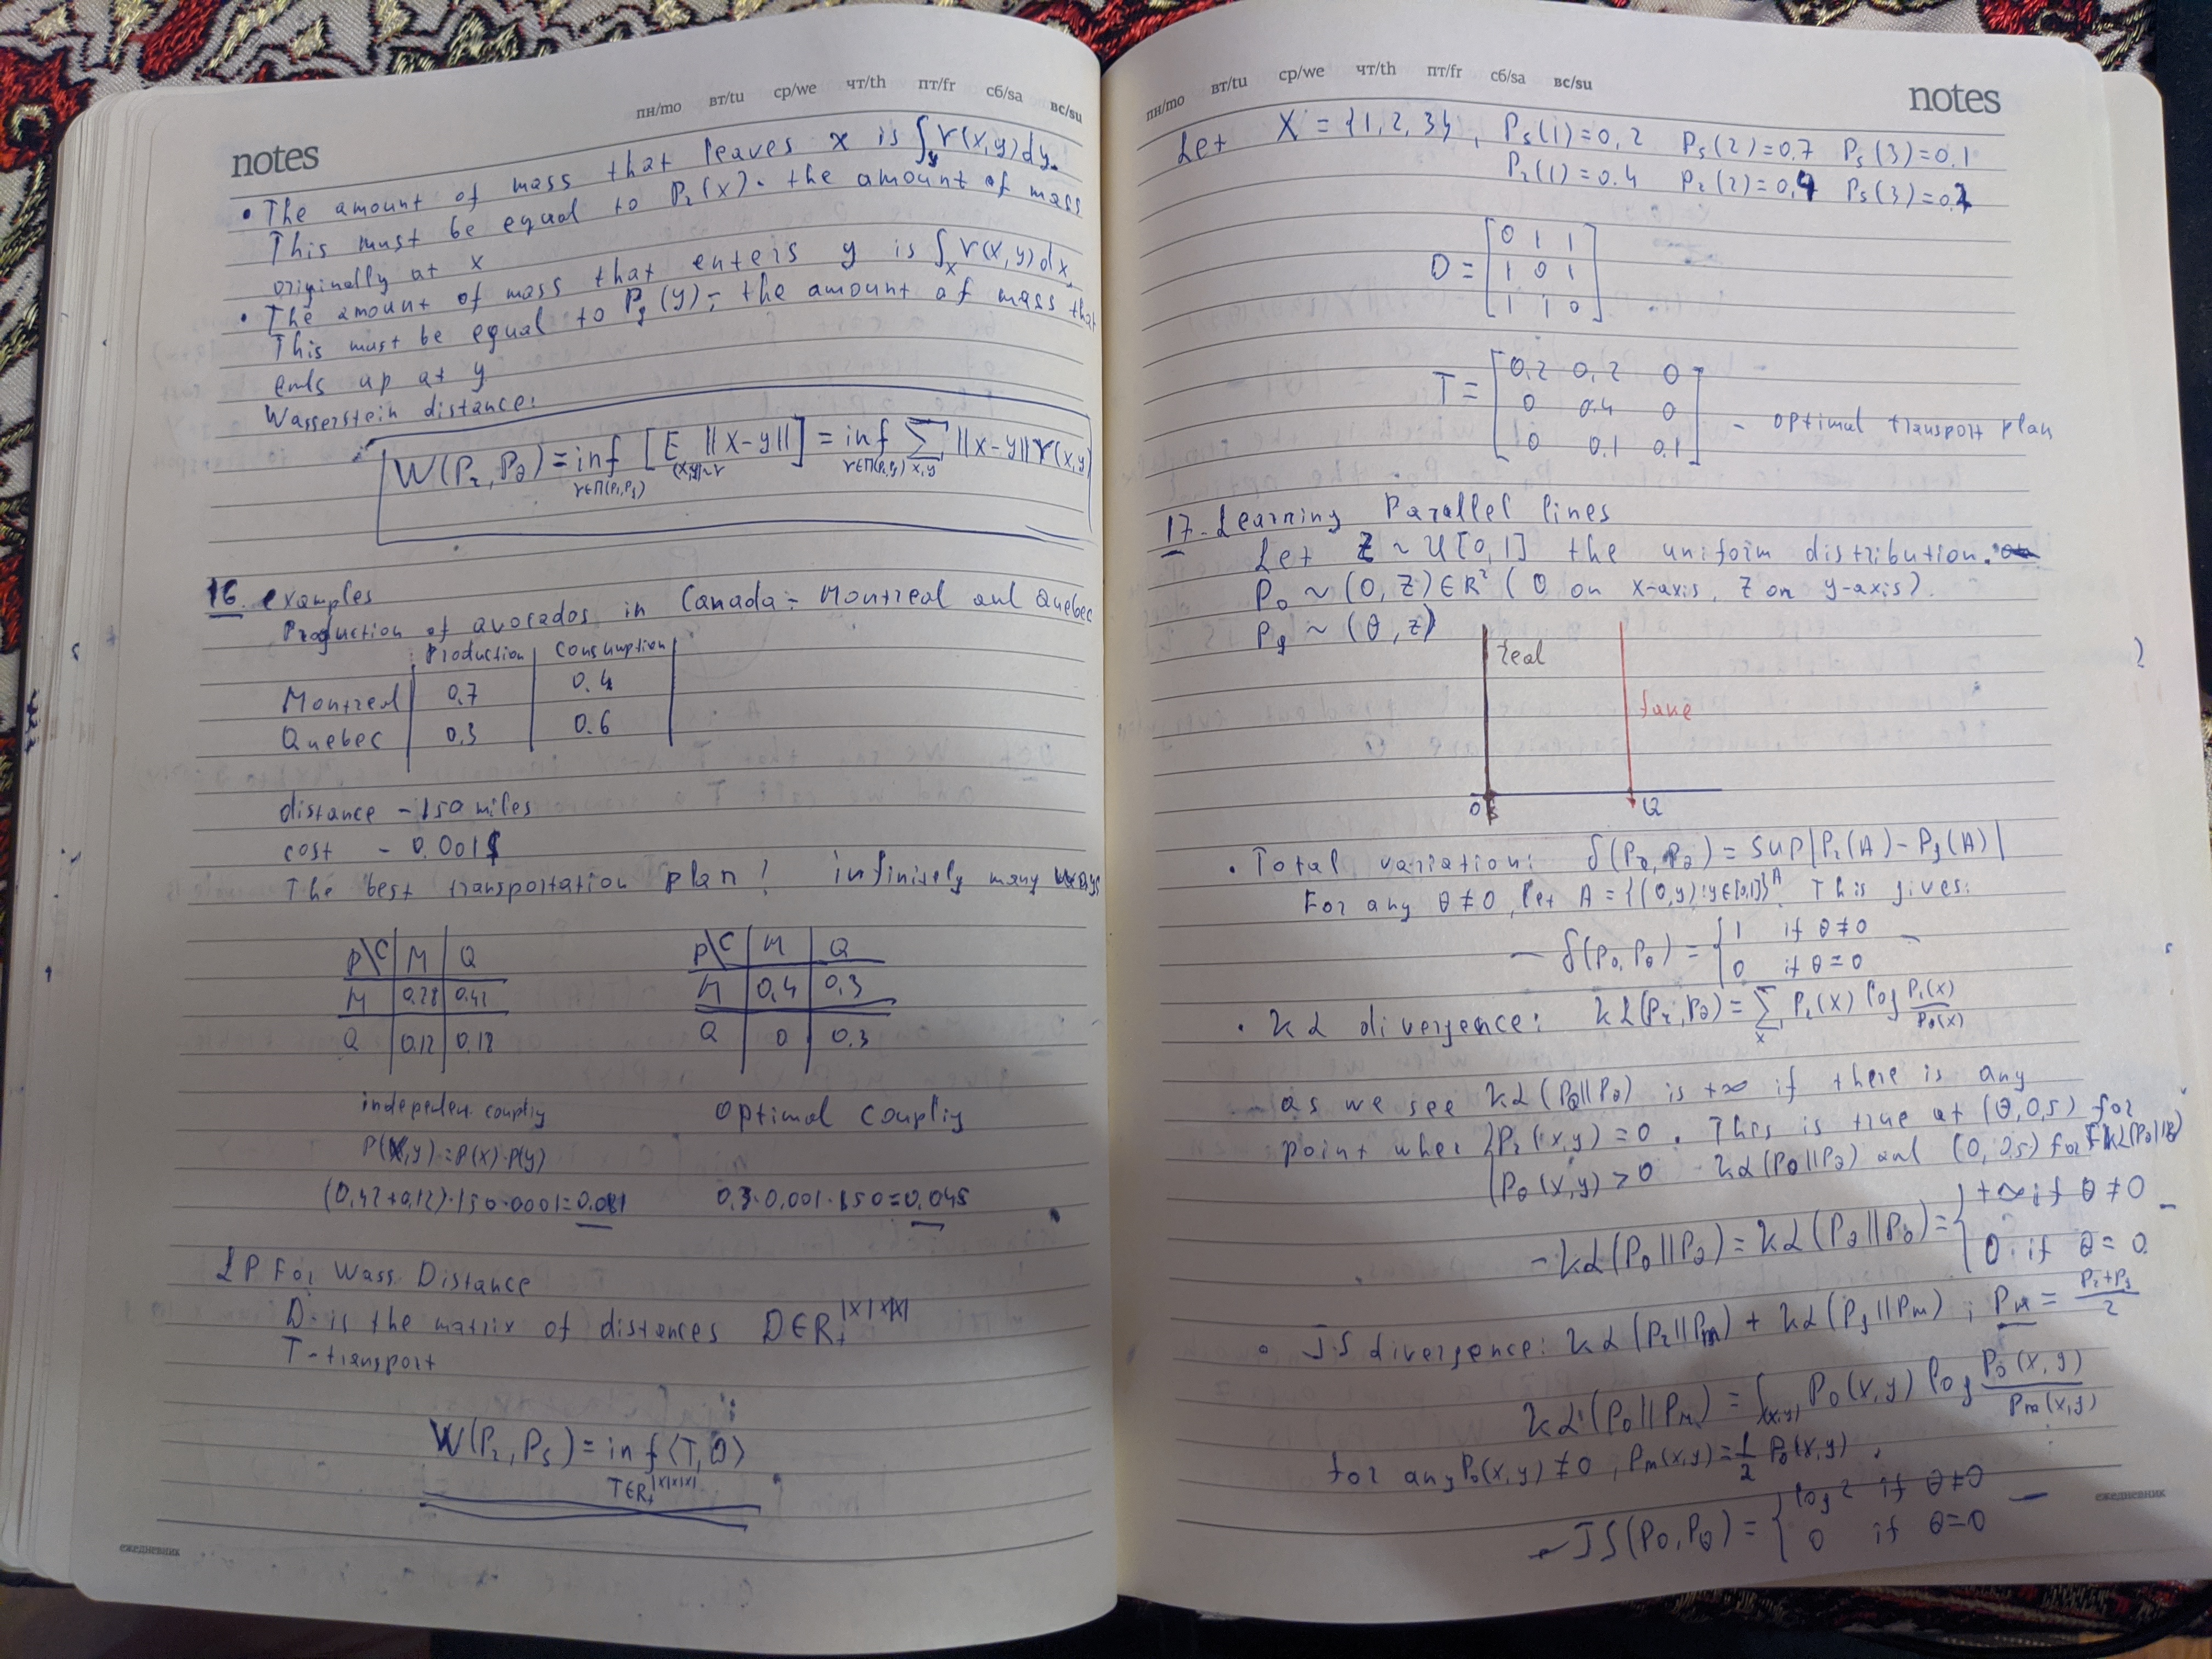 пн/mo вт/tu ср/we чт/th пт/fr сб/sa вс/su
notes
• The amount of mass that leaves x is ∫_y γ(x,y)dy.
This must be equal to Pr(x). the amount of mass
originally at x
• The amount of mass that enters y is ∫_x γ(x,y)dx
This must be equal to Pg(y) - the amount of mass that
ends up at y
Wasserstein distance:
W(Pr, Pθ) = inf_{γ∈Π(Pr,Pg)} [E_{(x,y)~γ} ||x-y||] = inf_{γ∈Π(Pr,Pg)} Σ_{x,y} ||x-y||γ(x,y)
16. examples
Production of avocados in Canada - Montreal and Quebec
Production Consumption
Montreal 0.7 0.4
Quebec 0.3 0.6
distance - 150 miles
cost - 0.001$
The best transportation plan! infinitely many ways
P\C M Q
M 0.28 0.42
Q 0.12 0.18
P\C M Q
M 0,4 0,3
Q 0 0.3
independen. couplig
P(x,y)=P(x)·P(y)
(0,42+0,12)·150·0001=0.081
Optimal couplig
0,3·0,001·150=0,045
LP For Wass Distance
D- is the matrix of distances D∈R₊^{|X|×|X|}
T-transport
W(Pr, Ps) = inf_{T∈R₊^{|X|×|X|}} ⟨T,D⟩
ежедневник
пн/mo вт/tu ср/we чт/th пт/fr сб/sa вс/su
notes
Let X = {1, 2, 3}, Ps(1)=0,2 Ps(2)=0.7 Ps(3)=0.1
Pr(1)=0.4 Pr(2)=0,4 Ps(3)=0.2
D = [0 1 1
1 0 1
1 1 0]
T = [0,2 0,2 0
0 0.4 0
0 0.1 0.1] - optimal transport plan
17. Learning Parallel lines
Let Z ~ U[0,1] the uniform distribution.
P₀ ~ (0, Z) ∈ R² (0 on x-axis, Z on y-axis).
Pg ~ (θ, z)
real
fake
0
• Total variation: δ(Pr, Pθ) = sup_A |Pr(A) - Pg(A)|
For any θ≠0, let A = {(0,y): y∈[0,1]}. This gives:
- δ(P₀, Pθ) = { 1 if θ≠0 -
0 if θ=0
• KL divergence: KL(Pr, Pθ) = Σ_x Pr(x) log Pr(x)/Pθ(x)
as we see KL(P₀||Pθ) is +∞ if there is any
point wher { Pr(x,y) = 0. This is true at (θ,0,5) for
Pθ(x,y) > 0 KL(P₀||Pθ) and (0, 0.5) for KL(Pθ||P₀)
- KL(P₀||Pθ) = KL(Pθ||P₀) = { +∞ if θ≠0 -
0 if θ=0.
• JS divergence: KL(Pr||Pm) + KL(Pg||Pm), Pm = Pr+Pg/2
KL(P₀||Pm) = ∫_{(x,y)} P₀(x,y) log P₀(x,y)/Pm(x,y)
for any P₀(x,y)≠0, Pm(x,y)=½ P₀(x,y).
- JS(P₀, Pθ) = { log 2 if θ≠0 -
0 if θ=0
ежедневник